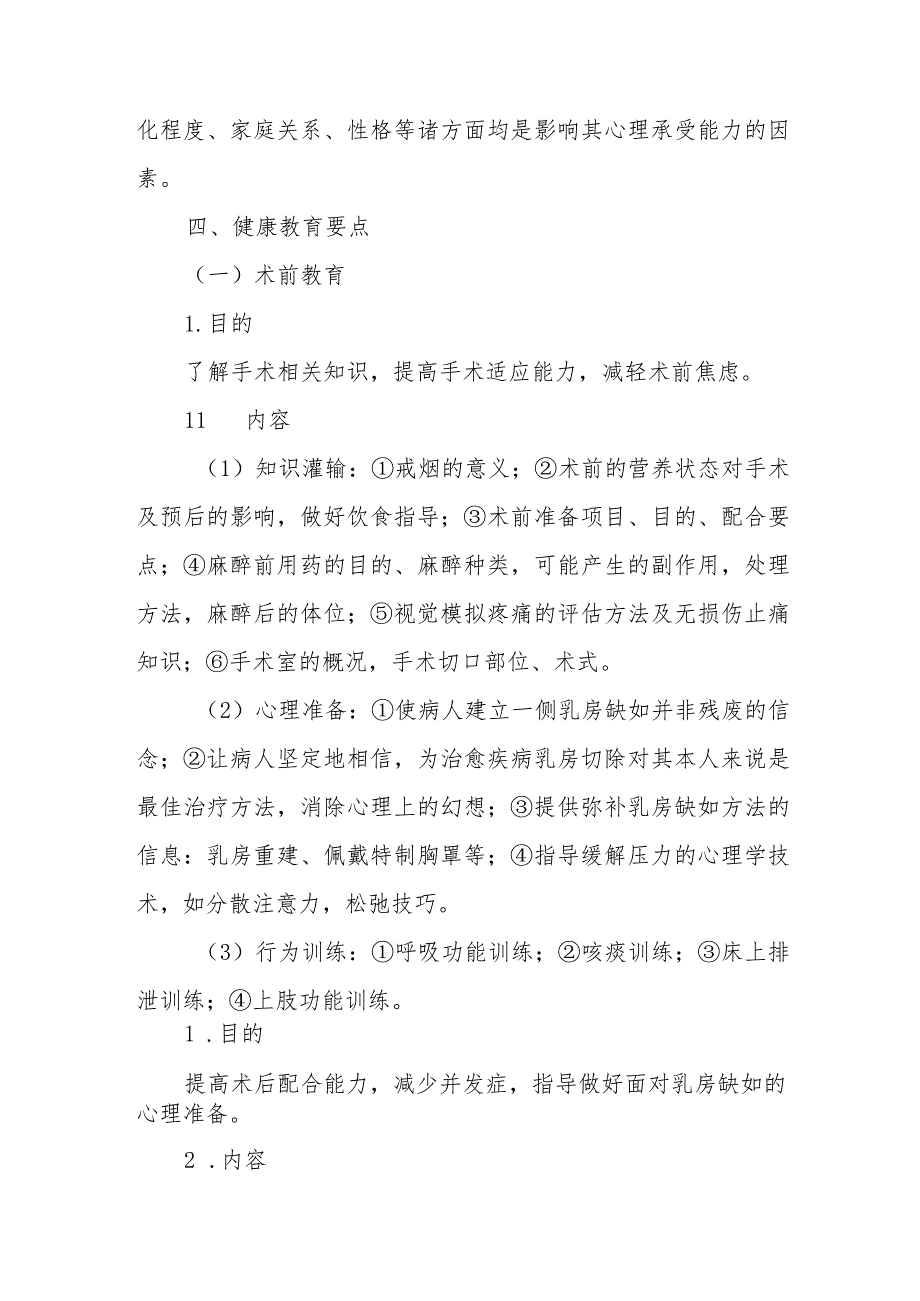 化程度、家庭关系、性格等诸方面均是影响其心理承受能力的因
素。
四、健康教育要点
（一）术前教育
1.目的
了解手术相关知识，提高手术适应能力，减轻术前焦虑。
11 内容
（1）知识灌输：①戒烟的意义；②术前的营养状态对手术
及预后的影响，做好饮食指导；③术前准备项目、目的、配合要
点；④麻醉前用药的目的、麻醉种类，可能产生的副作用，处理
方法，麻醉后的体位；⑤视觉模拟疼痛的评估方法及无损伤止痛
知识；⑥手术室的概况，手术切口部位、术式。
（2）心理准备：①使病人建立一侧乳房缺如并非残废的信
念；②让病人坚定地相信，为治愈疾病乳房切除对其本人来说是
最佳治疗方法，消除心理上的幻想；③提供弥补乳房缺如方法的
信息：乳房重建、佩戴特制胸罩等；④指导缓解压力的心理学技
术，如分散注意力，松弛技巧。
（3）行为训练：①呼吸功能训练；②咳痰训练；③床上排
泄训练；④上肢功能训练。
1 .目的
提高术后配合能力，减少并发症，指导做好面对乳房缺如的
心理准备。
2 .内容